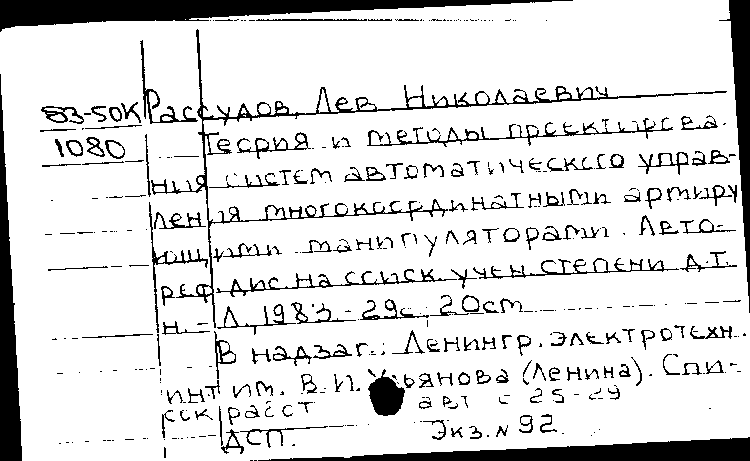 83-50К Рассудов, Лев Николаевич
1080 Теория и методы проектирова-
ния систем автоматического управ-
ления многокоординатными артиру
ющими манипуляторами. Авто-
реф. дис. на соиск. учен. степени д.т.
н. - Л., 1983. - 29с. 20см
В надзаг.: Ленингр. электротехн.
инт им. В.И. Ульянова (Ленина). Спи-
сок авт с 25-29
ДСП. Экз. N 92.